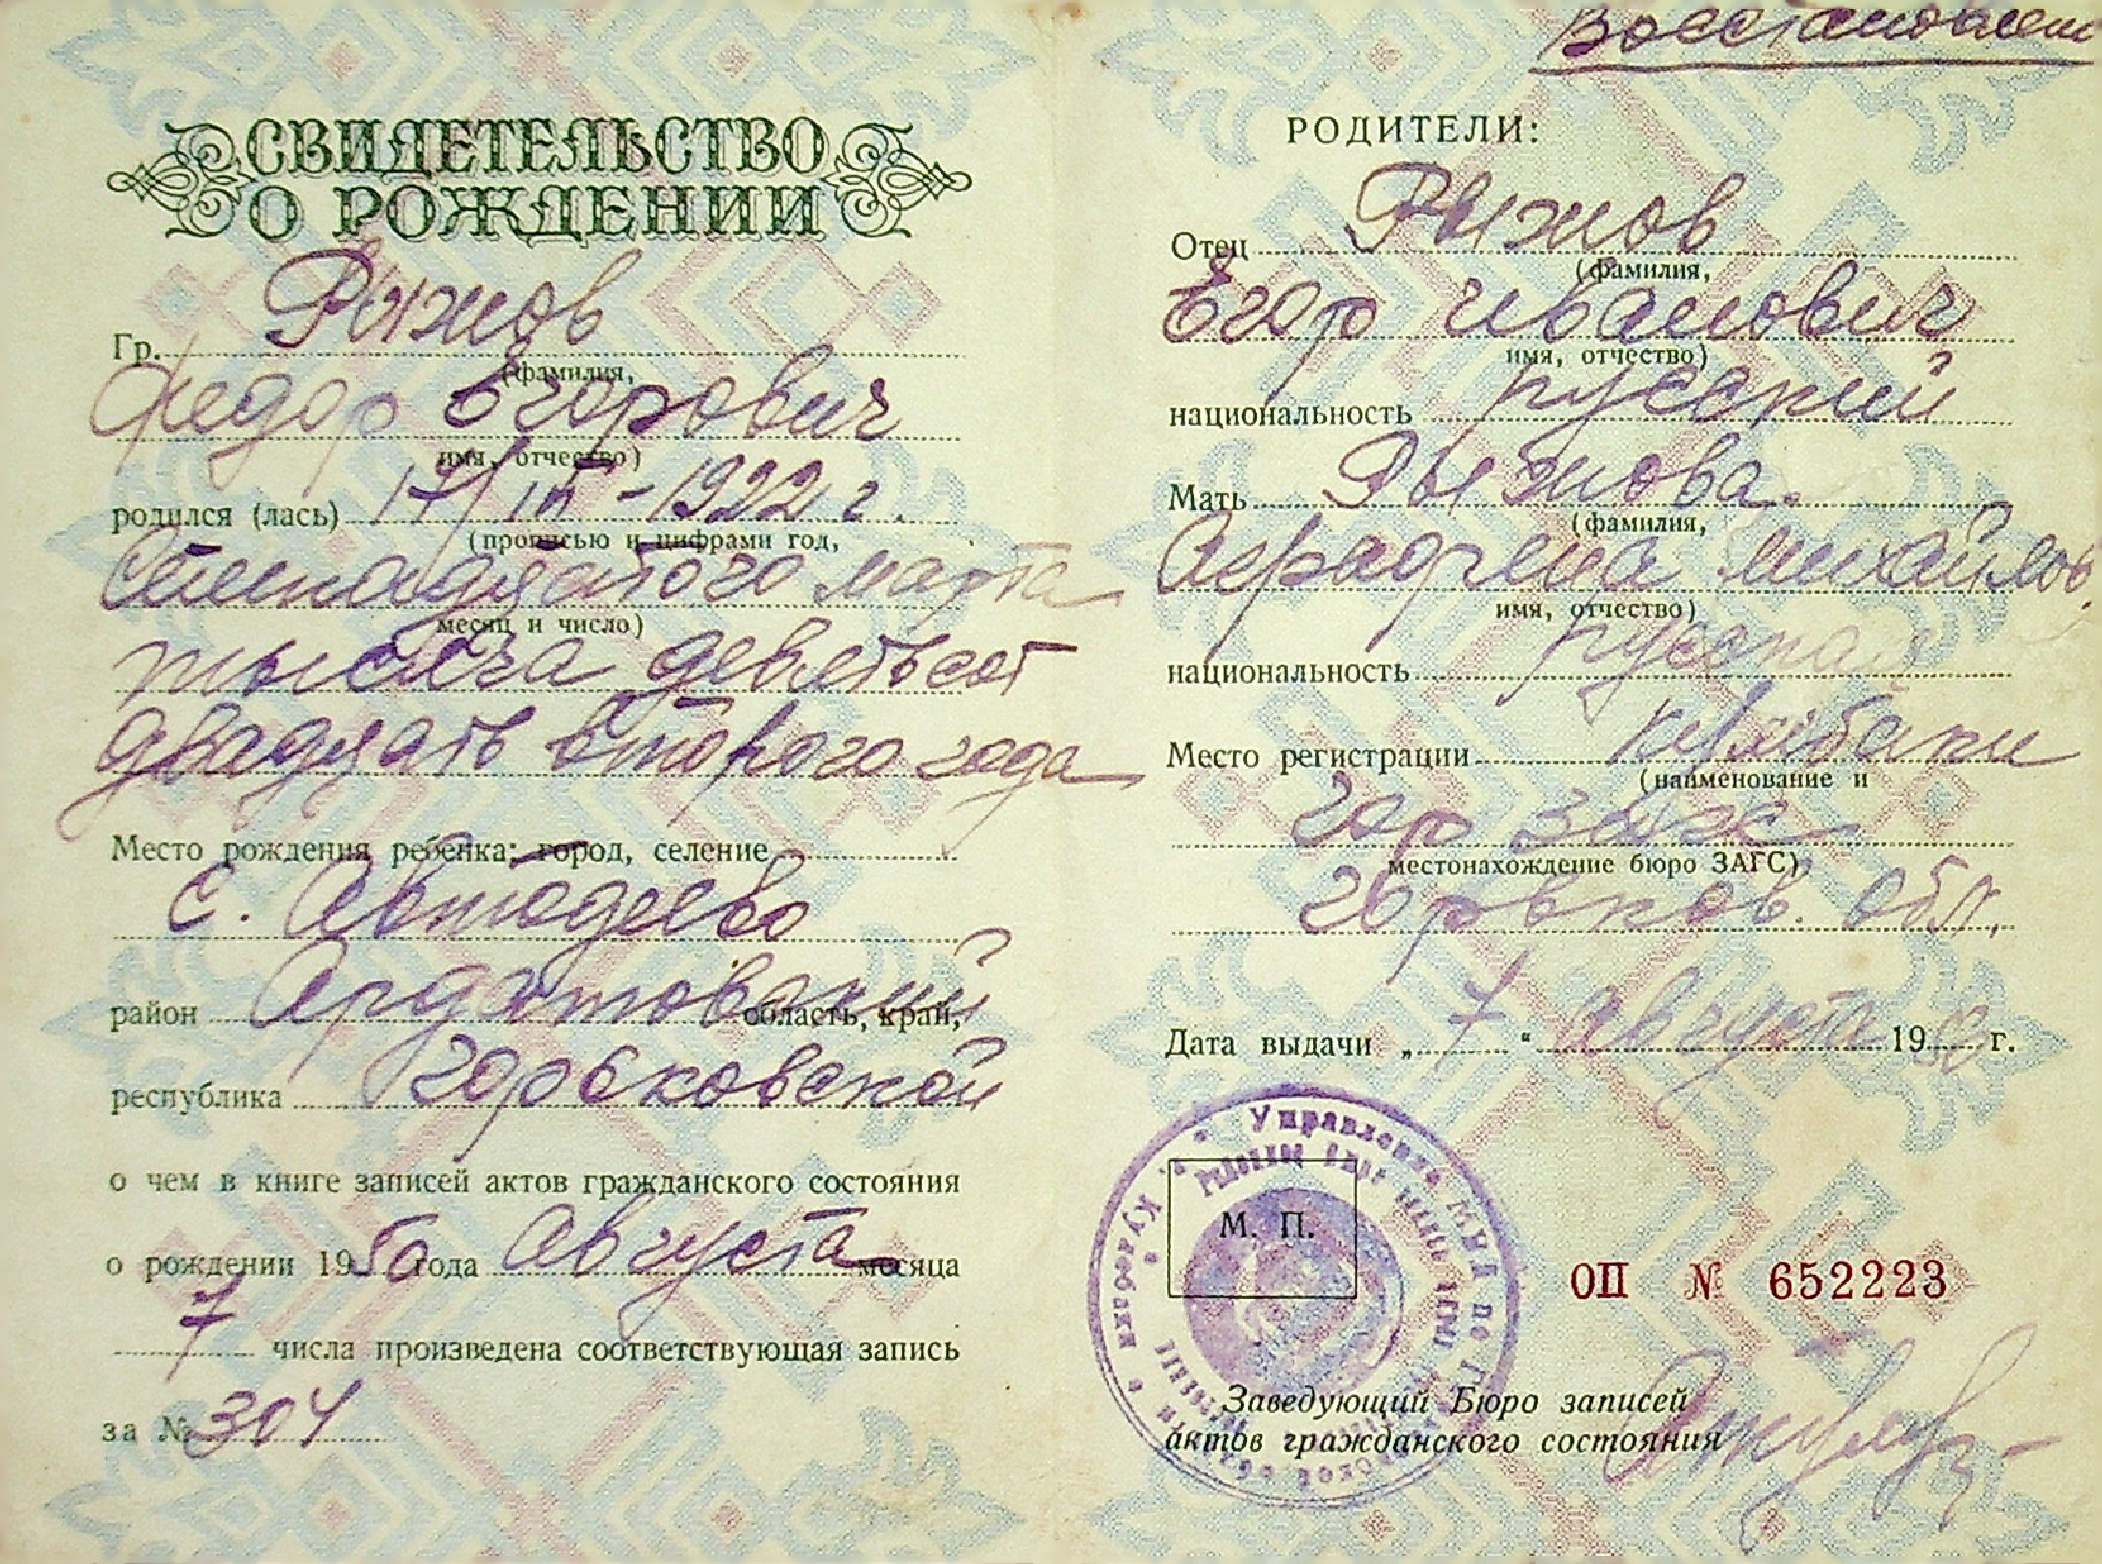 СВИДЕТЕЛЬСТВО
О РОЖДЕНИИ
Гр. Рыжов
(фамилия,
Федор Егорович
имя, отчество)
родился (лась) 17/III-1922 г.
(прописью и цифрами год,
Семнадцатого марта
месяц и число)
тысяча девятьсот
двадцать второго года
Место рождения ребенка: город, селение
с. Автодеево
район Ардатовский область, край,
республика Горьковской
о чем в книге записей актов гражданского состояния
о рождении 1950 года августа месяца
7 числа произведена соответствующая запись
за № 304
Восстановлен
РОДИТЕЛИ:
Отец Рыжов
(фамилия,
Егор Иванович
имя, отчество)
национальность русский
Мать Рыжова.
(фамилия,
Аграфена Михайлов.
имя, отчество)
национальность русская
Место регистрации Кулебаки
(наименование и
гор загс
местонахождение бюро ЗАГС)
Горьков. обл.
Дата выдачи „ 7 “ августа 1950 г.
М. П.
Управление МВД по
Кулебаки
ОП № 652223
Заведующий Бюро записей
актов гражданского состояния